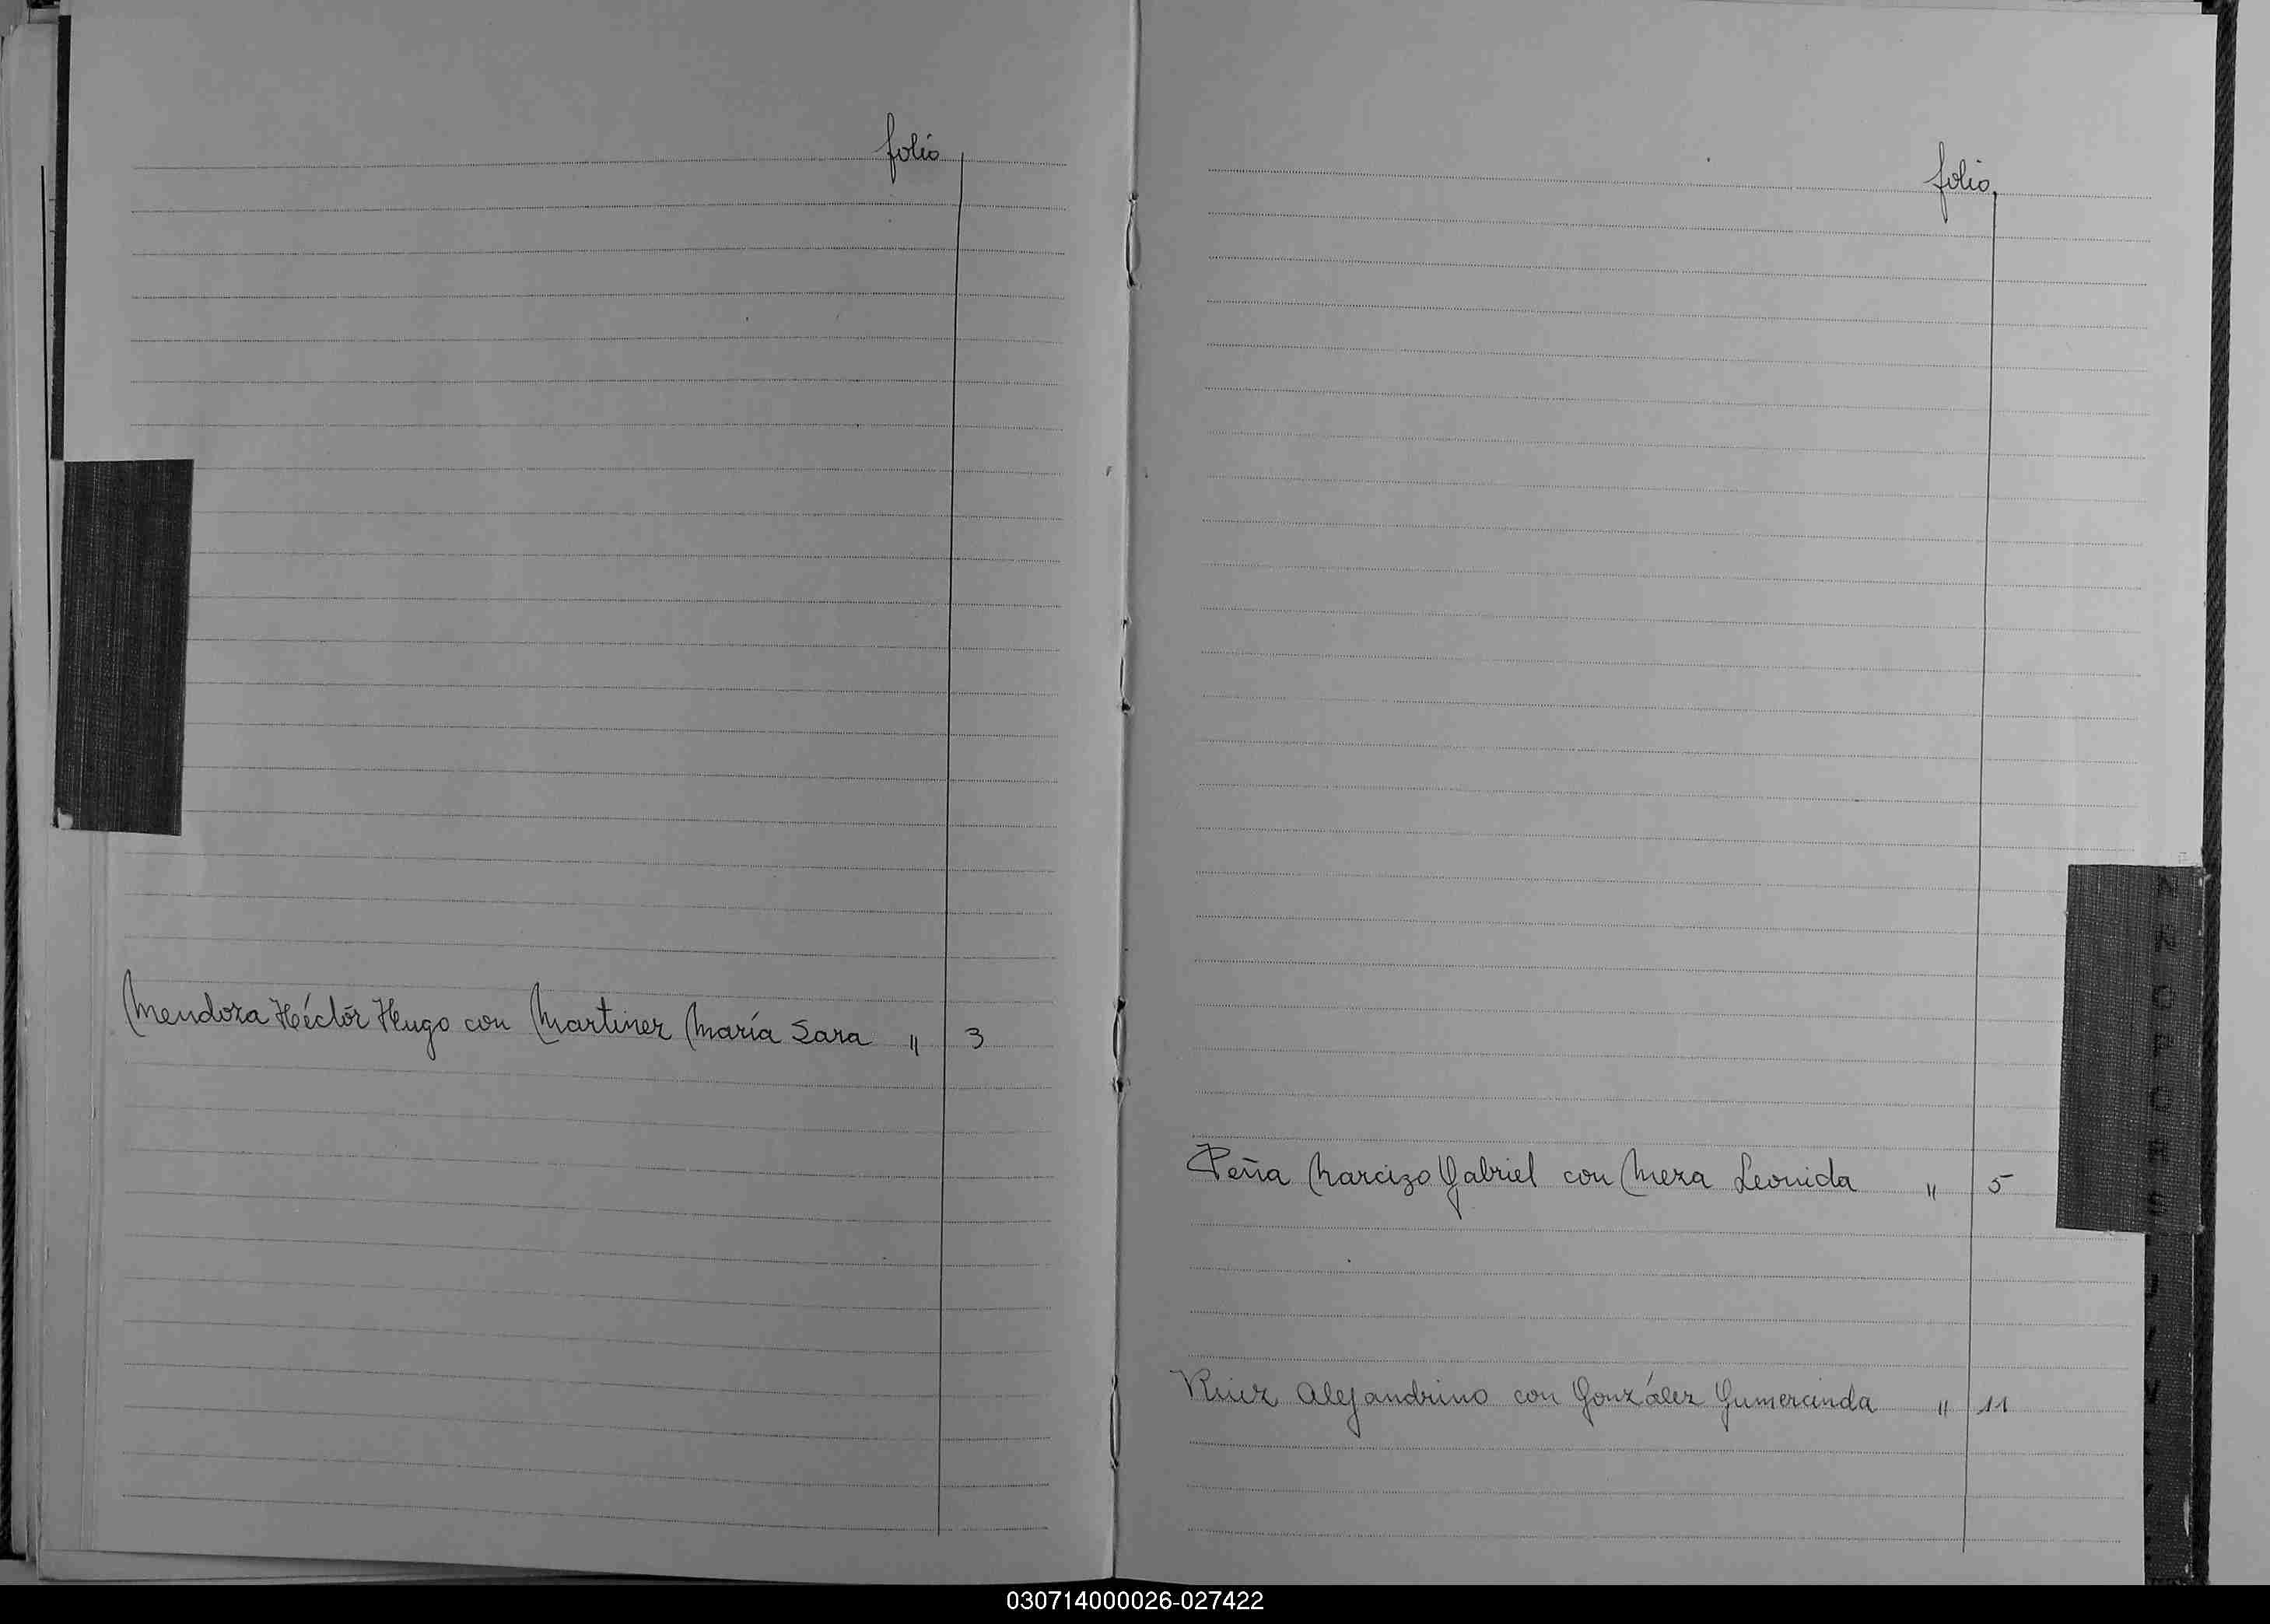 folio
Mendoza Héctor Hugo con Martinez María Sara " 3
folio
Peña Narcizo Gabriel con Meza Leonida " 5
Ruiz Alejandrino con González Gumercinda " 11
030714000026-027422